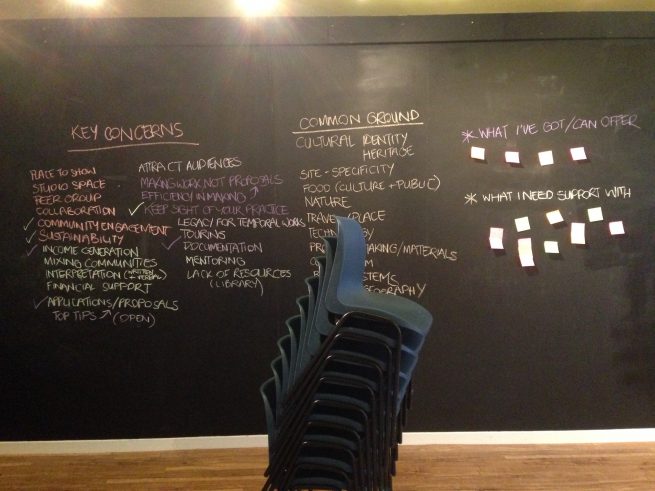 KEY CONCERNS
PLACE TO SHOW
STUDIO SPACE
PEER GROUP
COLLABORATION
✓ COMMUNITY ENGAGEMENT
✓ SUSTAINABILITY
✓ INCOME GENERATION
MIXING COMMUNITIES
INTERPRETATION (WRITTEN
FINANCIAL SUPPORT
✓ APPLICATIONS/PROPOSALS
TOP TIPS ↗ (OPEN)
ATTRACT AUDIENCES
MAKING WORK NOT PROPOSALS
EFFICIENCY IN MAKING ↗
✓ KEEP SIGHT OF YOUR PRACTICE
LEGACY FOR TEMPORAL WORKS
✓ TOURING
DOCUMENTATION
MENTORING
LACK OF RESOURCES
(LIBRARY)
COMMON GROUND
CULTURAL IDENTITY
HERITAGE
SITE-SPECIFICITY
FOOD (CULTURE + PUBLIC)
NATURE
PLACE
AKING/MATERIALS
* WHAT I'VE GOT/CAN OFFER
* WHAT I NEED SUPPORT WITH